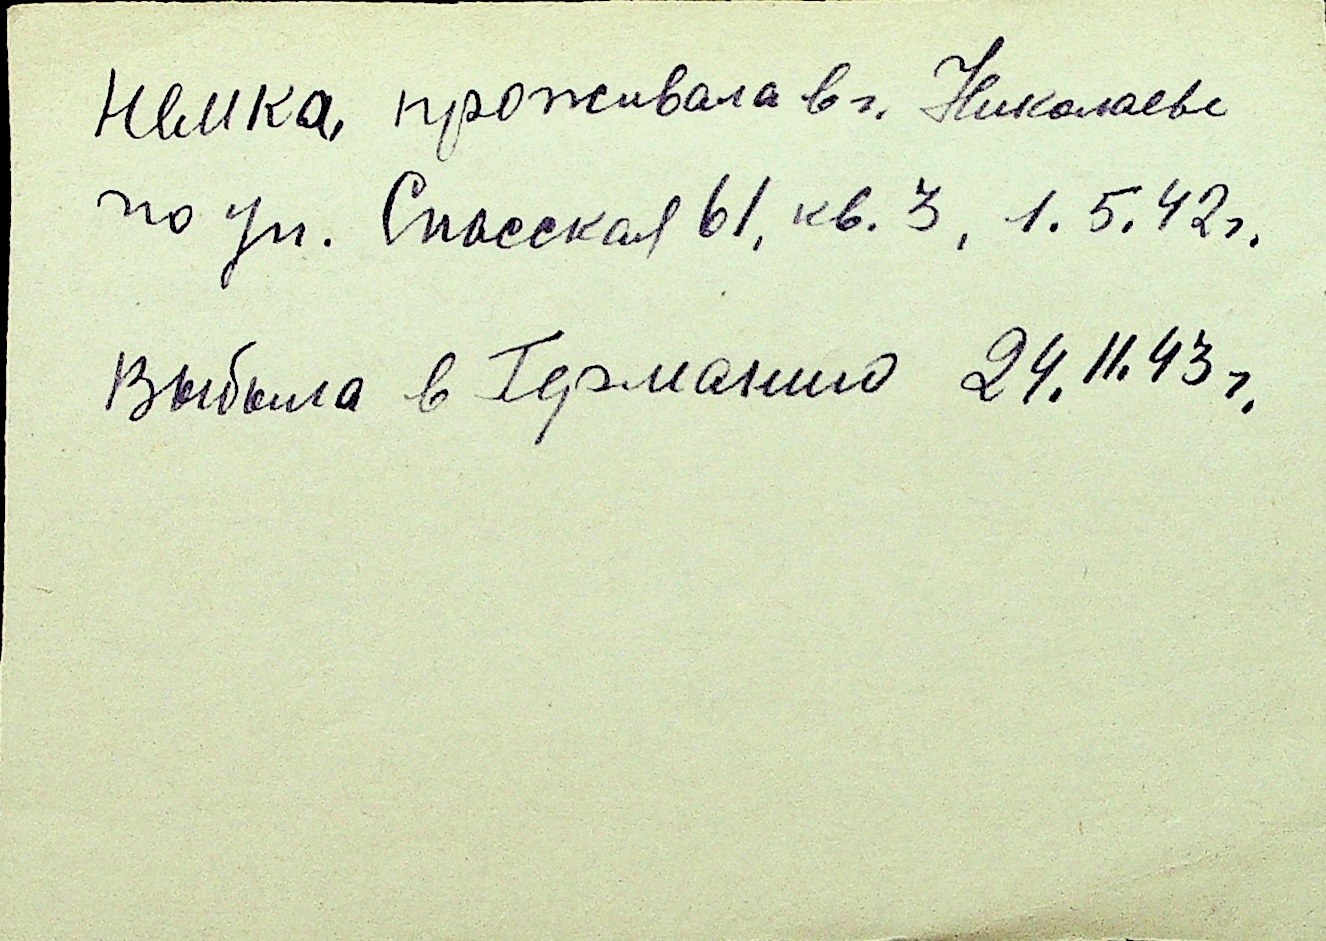 Немка, проживала в г. Николаеве
по ул. Спасская 61, кв. 3, 1.5.42 г.
Выбыла в Германию 24.11.43 г.